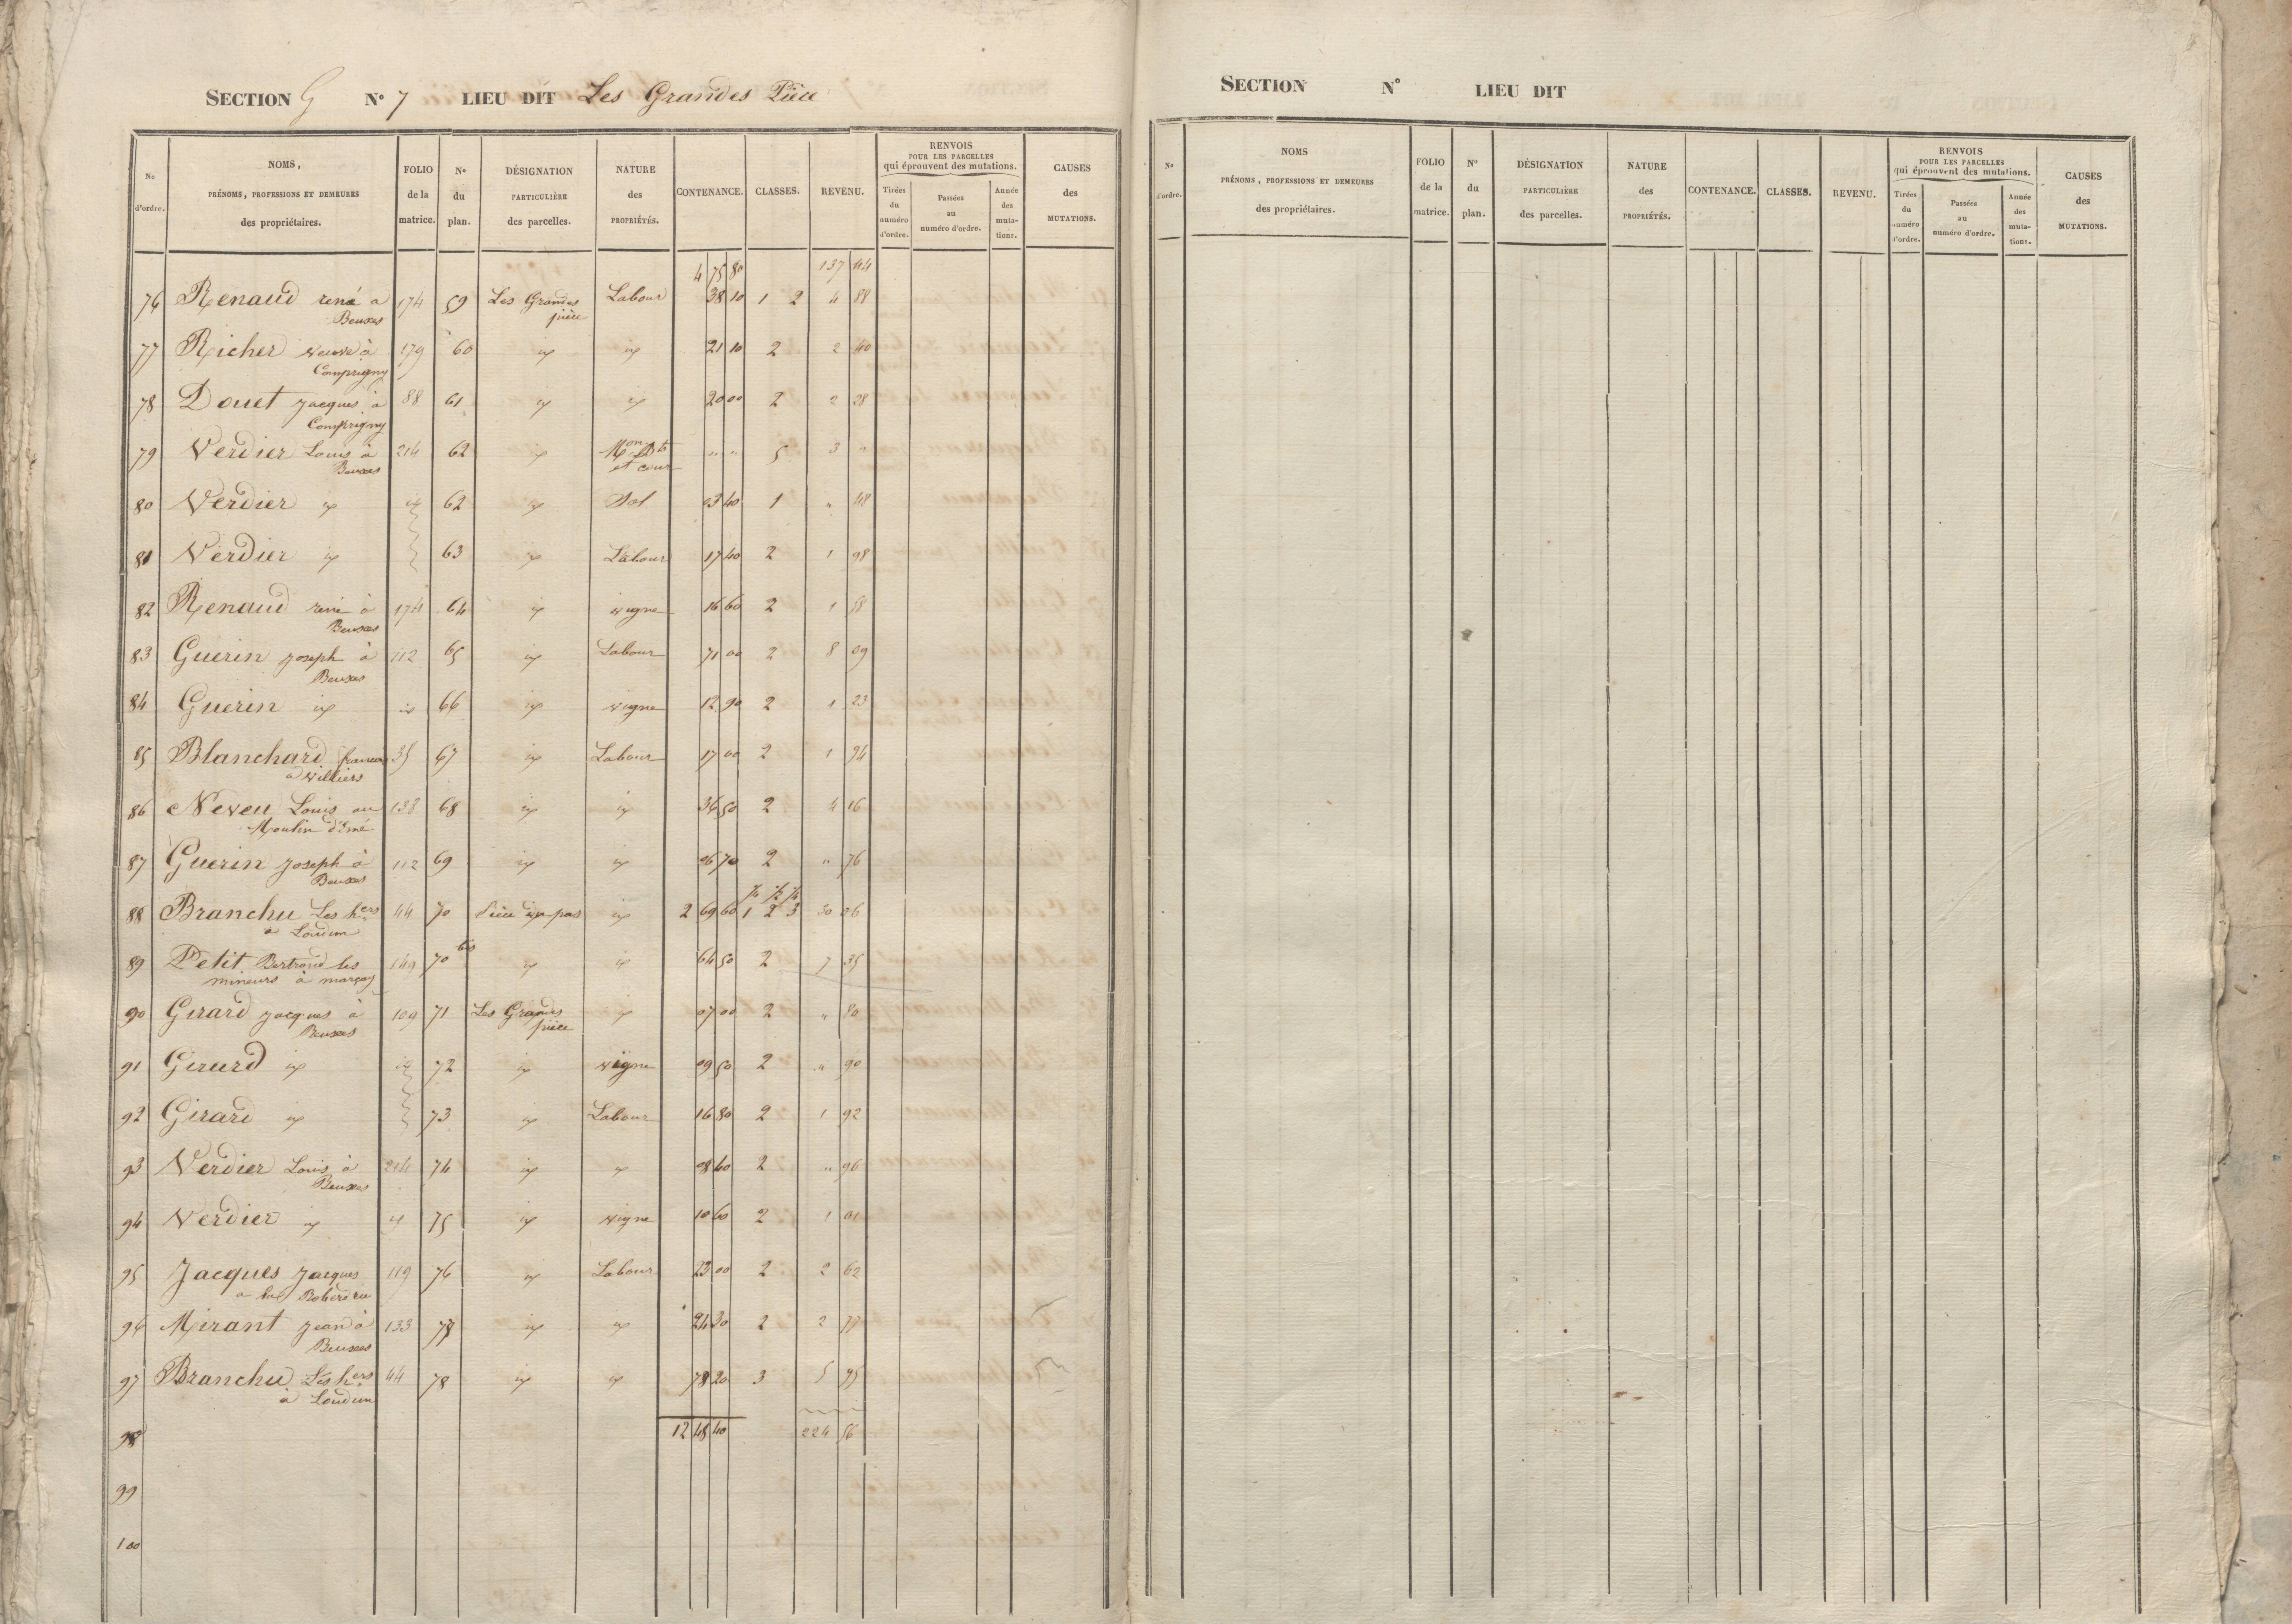 SECTION G N° 7 LIEU DIT Les Grandes Pièce
No d'ordre. NOMS, PRÉNOMS, PROFESSIONS ET DEMEURES des propriétaires. FOLIO de la matrice. N° du plan. DÉSIGNATION PARTICULIÈRE des parcelles. NATURE des PROPRIÉTÉS. CONTENANCE. CLASSES. REVENU. RENVOIS POUR LES PARCELLES qui éprouvent des mutations. Tirées du numéro d'ordre. Passées au numéro d'ordre. Année des mutations. CAUSES des MUTATIONS.
4 75 80 137 44
76 Renaud rené a 174 59 Les Grandes Labour 38 10 1 2 4 88
Beuxes pièce
77 Richer veuve à 179 60 id id 21 10 2 2 40
Comprigny
78 Douet Jacques à 88 61 id id 20 00 2 2 28
Comprigny
79 Verdier Louis à 214 62 id Mon Bt " " 5 3 "
Beuxes et cour
80 Verdier id id 62 id Sol 03 40 1 " 48
81 Verdier id 63 id Labour 17 40 2 1 98
82 Renaud rené à 174 64 id vigne 16 60 2 1 58
Beuxes
83 Guerin Joseph à 112 65 id Labour 71 00 2 8 09
Beuxes
84 Guerin id id 66 id vigne 12 90 2 1 23
85 Blanchard francois 35 67 id Labour 17 00 2 1 94
a villiers
86 Neveu Louis au 138 68 id id 36 50 2 4 16
Moulin d'Emé
87 Guerin Joseph à 112 69 id id 06 70 2 " 76
Beuxes
88 Branchu Les hers 44 70 id 2 69 60 1 2 3 30 06
a Loudun
89 Petit Bertrand les 149 70 bis id id 64 50 2 7 35
mineurs à marçay
90 Girard Jacques à 109 71 Les Grandes id 07 00 2 " 80
Beuxes pièce
91 Girard id id 72 id vigne 09 50 2 " 90
92 Girard id 73 id Labour 16 80 2 1 92
93 Verdier Louis à 214 74 id id 08 40 2 " 96
Beuxes
94 Verdier id id 75 id vigne 10 60 2 1 01
95 Jacques Jacques 119 76 id Labour 23 00 2 2 62
96 Mirant Jean à 133 77 id id 24 30 2 2 77
Beuxes
97 Branchu Les hers 44 78 id id 78 20 3 5 95
à Loudun
98 12 48 40 224 56
99
100
SECTION N° LIEU DIT
No d'ordre. NOMS PRÉNOMS, PROFESSIONS ET DEMEURES des propriétaires. FOLIO de la matrice. N° du plan. DÉSIGNATION PARTICULIÈRE des parcelles. NATURE des PROPRIÉTÉS. CONTENANCE. CLASSES. REVENU. RENVOIS POUR LES PARCELLES qui éprouvent des mutations. Tirées du numéro d'ordre. Passées au numéro d'ordre. Année des mutations. CAUSES des MUTATIONS.